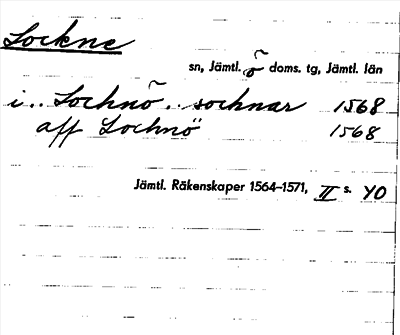 Lockne
sn, Jämtl. ö doms. tg, Jämtl. län
i.. Lochnõ.. sochnar 1568
aff Lochnö 1568
Jämtl. Räkenskaper 1564-1571, II s. 40